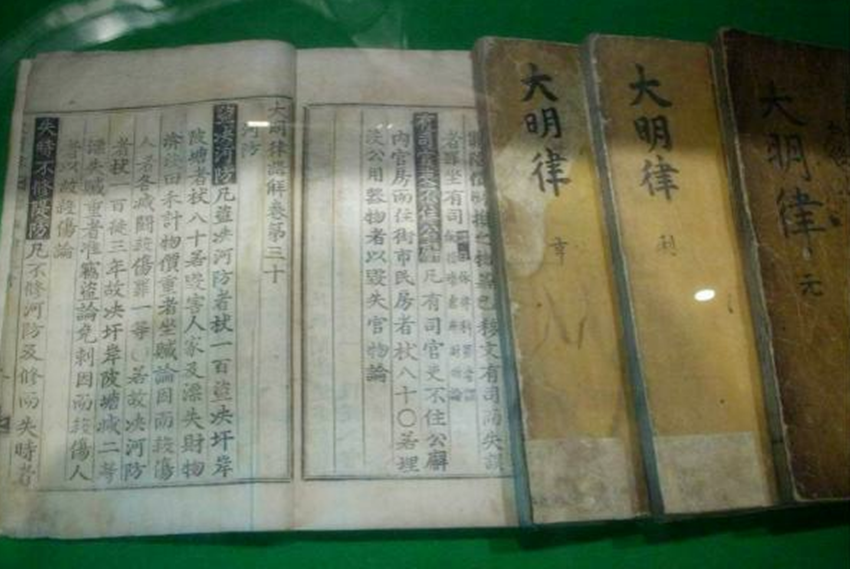 大明律
元
大明律
利
大明律
移文有司而失誤
者罪坐有司
有司官吏不住公廨 凡有司官吏不住公廨
內官房而住街市民房者杖八十〇若埋
沒公用器物者以毀失官物論
大明律講解卷第三十
河防
盜決河防 凡盜決河防者杖一百盜決圩岸
陂塘者杖八十若毀害人家及漂失財物
渰沒田禾計物價重者坐贓論因而殺傷
人者各減鬪殺傷罪一等〇若故決河防
者杖一百徒三年故決圩岸陂塘減二等
漂失贓重者准竊盜論免刺因而殺傷人
者以故殺傷論
失時不修隄防 凡不修河防及修而失時者